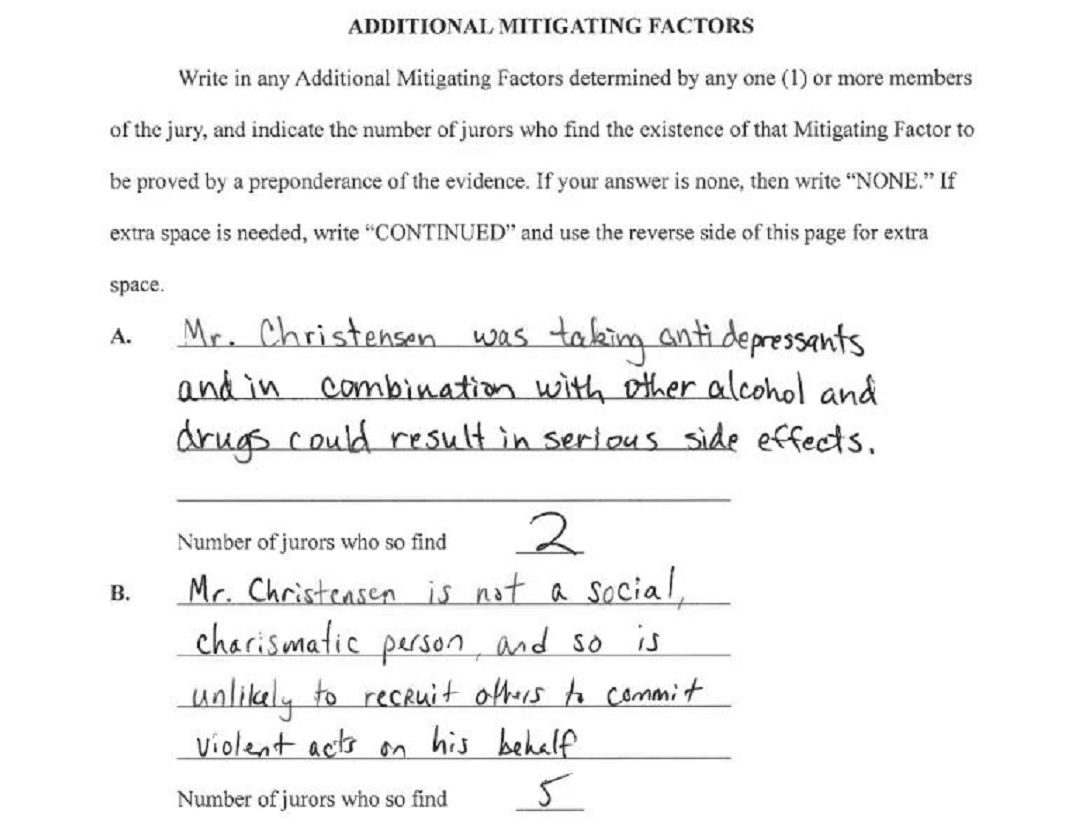 ADDITIONAL MITIGATING FACTORS
Write in any Additional Mitigating Factors determined by any one (1) or more members
of the jury, and indicate the number of jurors who find the existence of that Mitigating Factor to
be proved by a preponderance of the evidence. If your answer is none, then write “NONE.” If
extra space is needed, write “CONTINUED” and use the reverse side of this page for extra
space.
A. Mr. Christensen was taking antidepressants
and in combination with other alcohol and
drugs could result in serious side effects.
Number of jurors who so find 2
B. Mr. Christensen is not a social,
charismatic person, and so is
unlikely to recruit others to commit
violent acts on his behalf
Number of jurors who so find 5